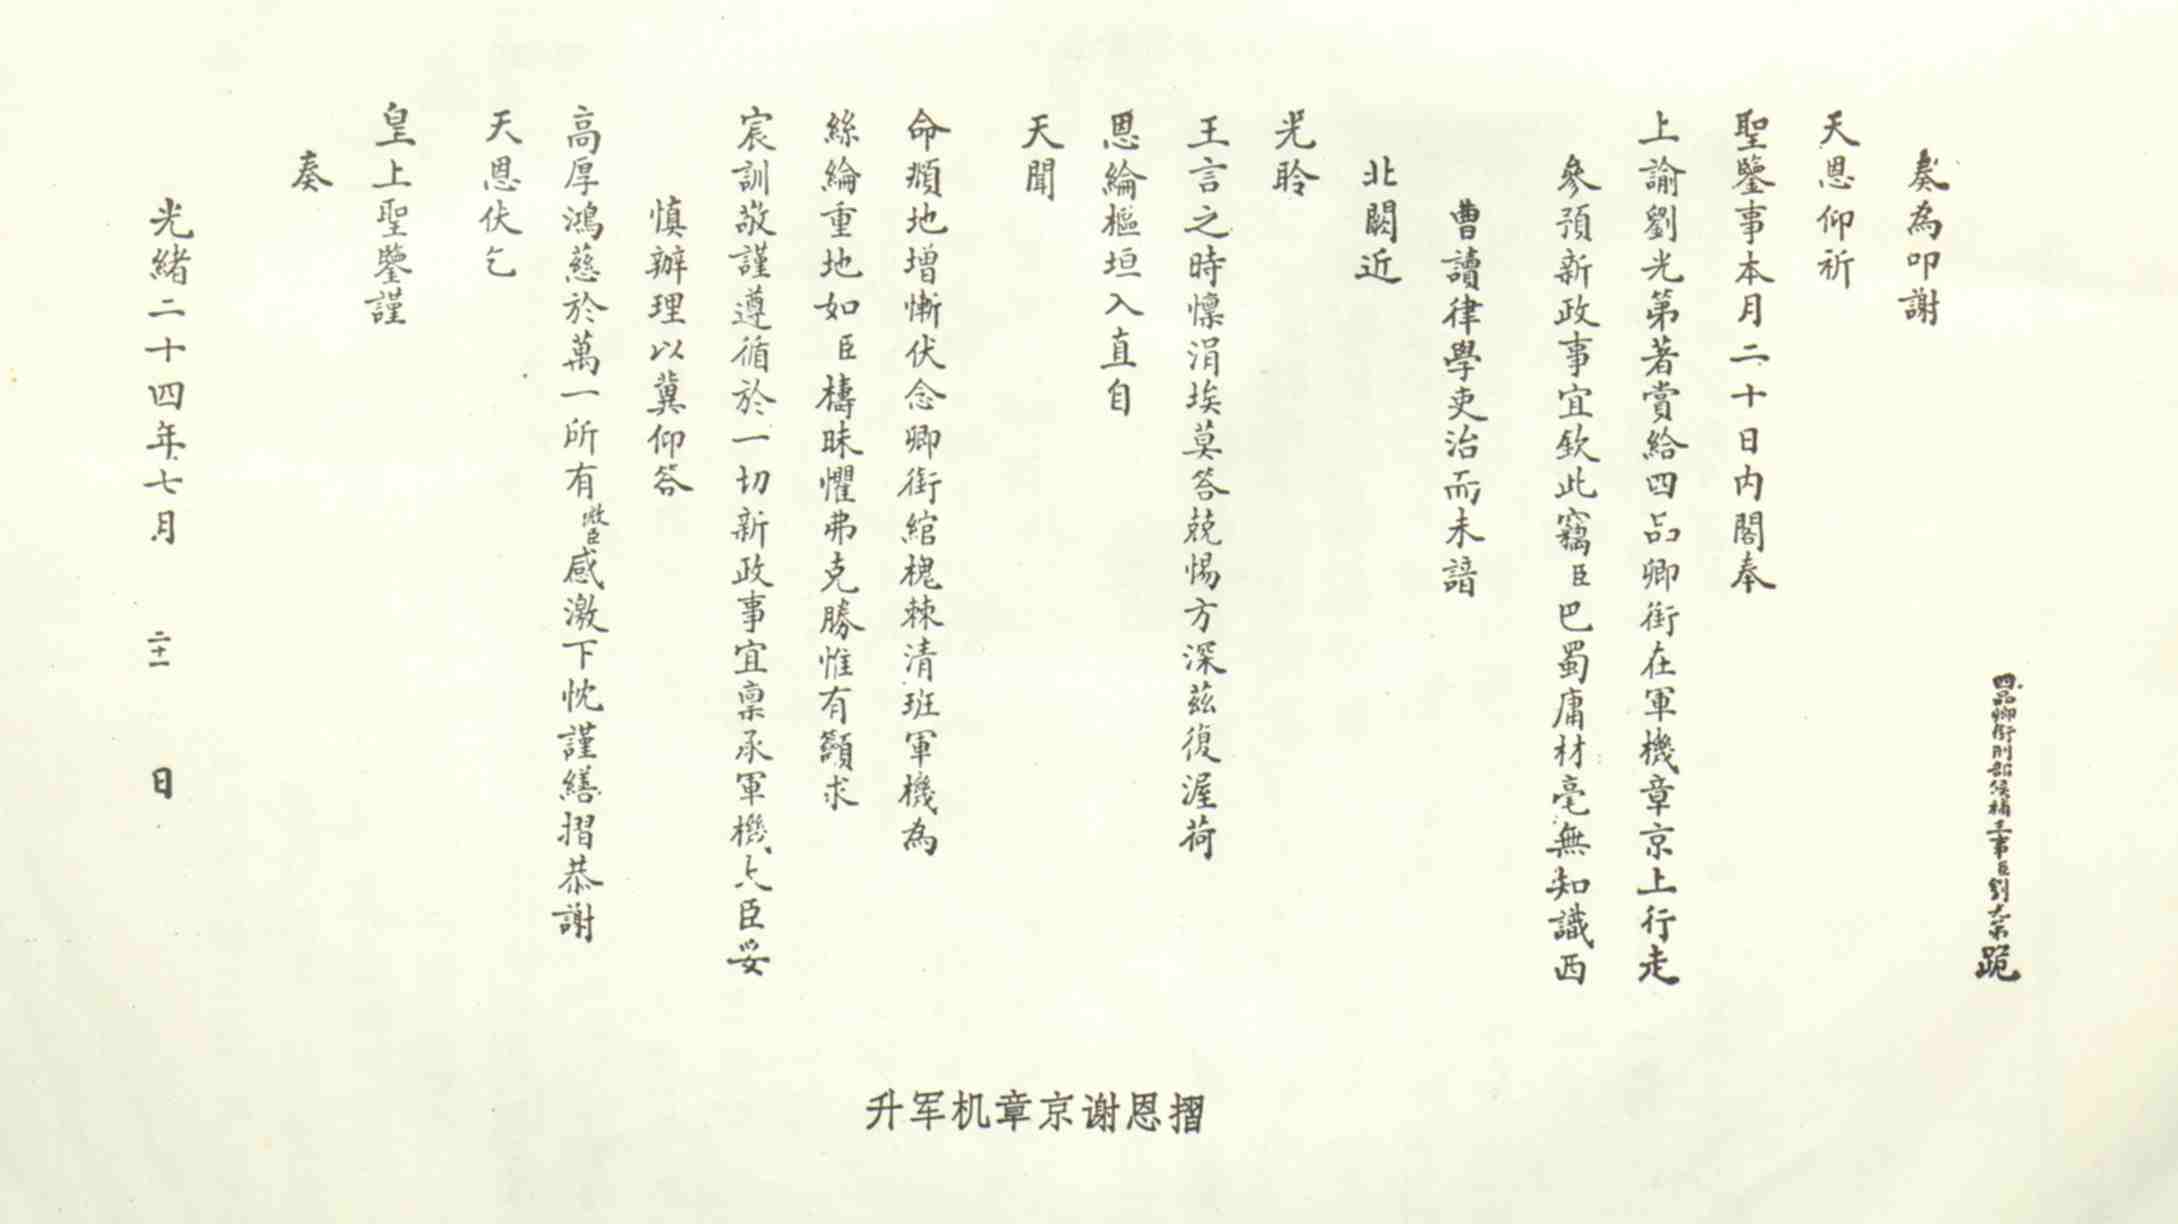 四品卿銜刑部候補主事臣劉光第跪
奏為叩謝
天恩仰祈
聖鑒事本月二十日內閣奉
上諭劉光第著賞給四品卿銜在軍機章京上行走
參預新政事宜欽此竊臣巴蜀庸材毫無知識西
曹讀律學吏治而未諳
北闕近
光聆
王言之時懍涓埃莫答兢惕方深茲復渥荷
恩綸樞垣入直自
天聞
命頫地增慚伏念卿銜綰槐棘清班軍機為
絲綸重地如臣檮昧懼弗克勝惟有籲求
宸訓敬謹遵循於一切新政事宜稟承軍機大臣妥
慎辦理以冀仰答
高厚鴻慈於萬一所有微臣感激下忱謹繕摺恭謝
天恩伏乞
皇上聖鑒謹
奏
光緒二十四年七月 二十一 日
升军机章京谢恩摺